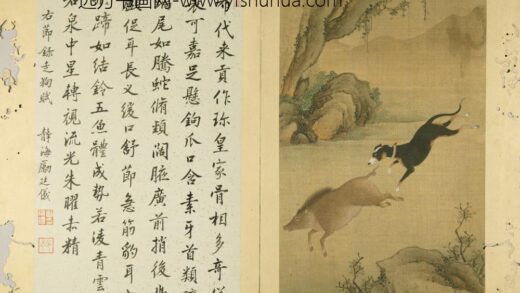 代来貢作珎皇家骨相多奇儀
可嘉足懸鉤爪口含素牙首類
尾如騰蛇脩頸闊腋廣前捎後
促耳長叉緩口舒節急筋豹耳
蹄如結鈴五魚體成勢若凌青雲
若泉中星轉視流光朱曜赤精
右節錄走狗賦
靜海勵廷儀